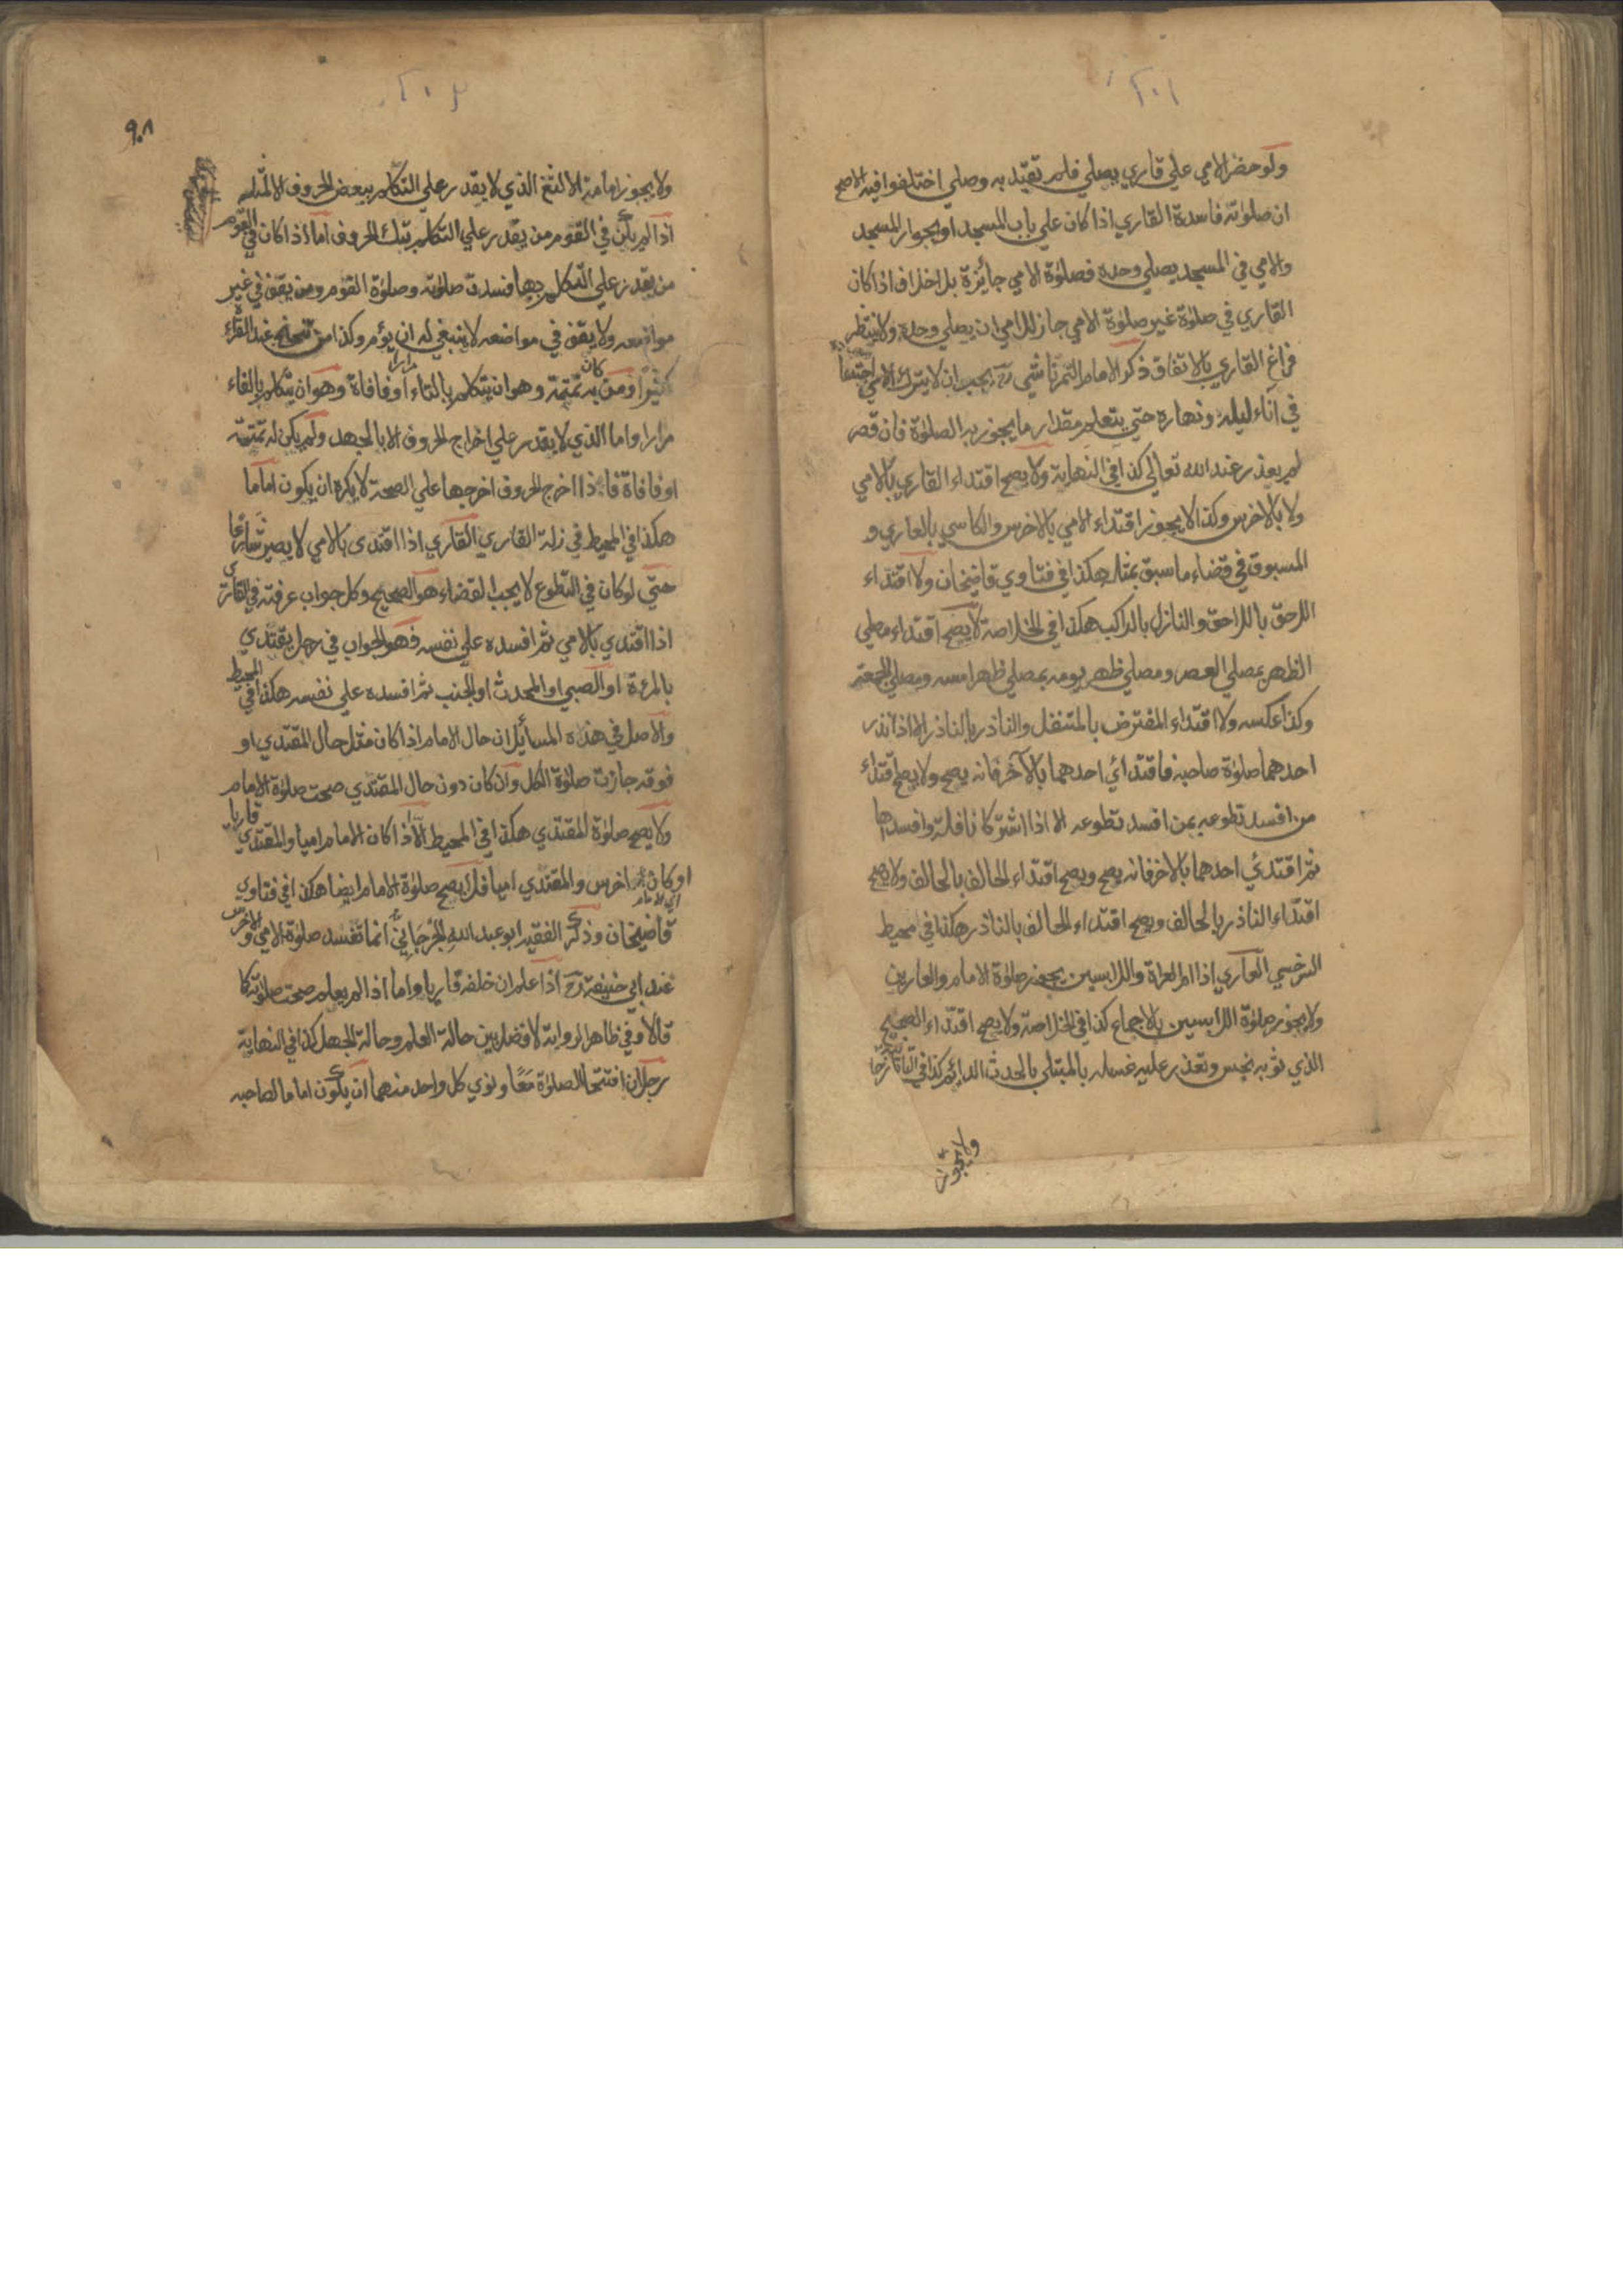 ٢٠١
ولو حضر الامي علي قاري يصلي فلم تقيد به وصلي اختلفوا فيه الاصح
ان صلوته فاسدة القاري اذا كان علي باب المسجد او بجوار المسجد
والامي في المسجد يصلي وحده فصلوة الامي جائزة بلا خلاف اذا كان
القاري في صلوة غير صلوة الامي جاز للامي ان يصلي وحده ولا ينتظر
فراغ القاري بالاتفاق ذكر الامام التمرتاشي رح يجب ان لا يترك الامي اجتهاده
في آناء ليله ونهاره حتي يتعلم مقدار ما يجوز به الصلوة فان قصر
لم يعذر عند الله تعالي كذا في النهاية ولا يصح اقتداء القاري بالامي
ولا بالاخرس وكذا لا يجوز اقتداء الامي بالاخرس والكاسي بالعاري و
المسبوق في قضاء ما سبق بمثله هكذا في فتاوي قاضيخان ولا اقتداء
اللاحق باللاحق والنازل بالراكب هكذا في الخلاصة لا يصح اقتداء مصلي
الظهر بمصلي العصر ومصلي ظهر يومه بمصلي ظهر امسه ومصلي الجمعة
وكذا عكسه ولا اقتداء المفترض بالمتنفل والناذر بالناذر الا اذا نذر
احدهما صلوة صاحبه فاقتدائي احدهما بالآخر فانه يصح ولا يصح اقتداء
من افسد تطوعه بمن افسد تطوعه الا اذا اشتركا نافلة وافسداها
ثم اقتدئي احدهما بالاخر فانه يصح ويصح اقتداء الحالف بالحالف ولا يصح
اقتداء الناذر بالحالف ويصح اقتداء الحالف بالناذر هكذا في محيط
السرخسي العاري اذا ام العراة واللابسين يجوز صلوة الامام والعارين
ولا يجوز صلوة اللابسين بالاجماع كذا في الخلاصة ولا يصح اقتداء الصحيح
الذي ثوبه نجس وتعذر عليه غسله بالمبتلي بالحدث الدائم كذا في التاتارخانية
ولا يجوز
٢٠٢
٩٠٨
ولا يجوز امامة الالثغ الذي لا يقدر علي التكلم ببعض الحروف الا لمثله
اذا لم يكن في القوم من يقدر علي التكلم بتلك الحروف اما اذا كان في القوم
من يقدر علي التكلم بها فسدت صلوته وصلوة القوم ومن يقف في غير
مواضعه ولا يقف في مواضعه لا ينبغي له ان يؤم وكذا من تنحنح عند القراءة
كثيرا ومن كان به تمتمة وهو ان يتكلم بالتاء مرارا او فافاة وهو ان يتكلم بالفاء
مرارا واما الذي لا يقدر علي اخراج الحروف الا بالجهد ولم يكن له تمتمة
او فافاة فاذا اخرج الحروف اخرجها علي الصحة لا يكره ان يكون اماما
هكذا في المحيط في زلة القاري القاري اذا اقتدى بالامي لا يصير شارعا
حتي لو كان في التطوع لا يجب القضاء هو الصحيح وكل جواب عرفته في القاري
اذا اقتدي بالامي ثم افسده علي نفسه فهو الجواب في رجل يقتدي
بالمرءة او الصبي او المحدث او الجنب ثم افسده علي نفسه هكذا في المحيط
والاصل في هذه المسائل ان حال الامام اذا كان مثل حال المقتدي او
فوقه جازت صلوة الكل وان كان دون حال المقتدي صحت صلوة الامام
ولا يصح صلوة المقتدي هكذا في المحيط الا اذا كان الامام اميا والمقتدي قاريا
او كان اخرس والمقتدي اميا فلا يصح صلوة الامام ايضا هكذا في فتاوي
اي الامام
قاضيخان وذكر الفقيه ابو عبد الله الجرجاني انما تفسد صلوة الامي والاخرس
عند ابي حنيفة رح اذا علم ان خلفه قاريا واما اذا لم يعلم صحت صلوته كا
قالا وفي ظاهر الرواية لا فضل بين حالة العلم وحالة الجهل كذا في النهاية
رجلان افتتحا الصلوة معا ونوي كل واحد منهما ان يكون اماما لصاحبه